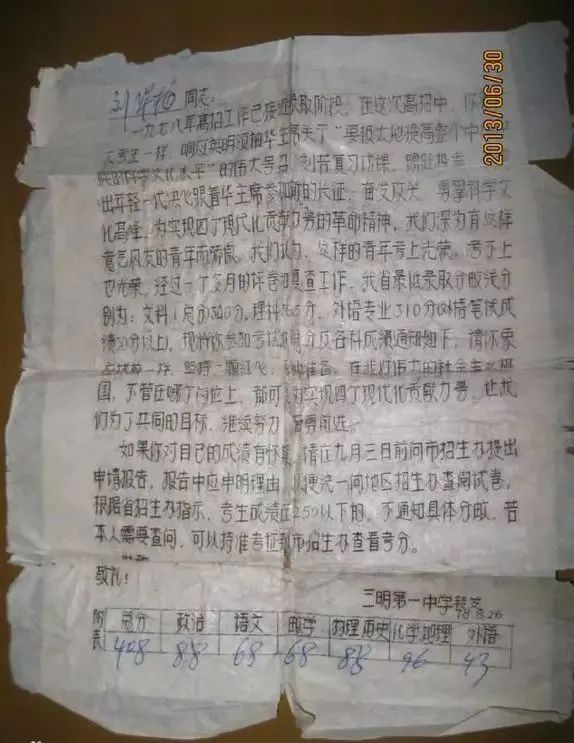 2013/06/30
刘 同志:
一九七八年高招工作已接近录取阶段。在这次高招中,你
一样,响应英明领袖华主席关于"要极大地提高整个中
族的科学文化水平"的伟大号召,刻苦复习功课,踊跃投考,
出年轻一代决心跟着华主席参加新的长征,奋发应关,勇攀科学文
化高峰,为实现四个现代化贡献力量的革命精神。我们深为有这样
意气风发的青年而骄傲。我们认为,这样的青年考上光荣,考不上
也光荣。经过一个多月的评卷和复查工作,我省最低录取分数线分
别为:文科(总分)340分,理科365分,外语专业310分(外语笔试成
绩50分以上)。现将你参加考试的总分及各科成绩通知如下,请你象
一样,坚持一颗红心, 种准备。在我们伟大的社会主义祖
国,不管在哪个岗位上,都可 为实现四个现代化贡献力量,让我
们为了共同的目标,继续努力, 勇前进。
如果你对自己的成绩有怀疑,请在九月三日前向市招生办提出
申请报告,报告中应申明理由,以便统一向地区招生办查阅试卷。
根据省招生办指示,考生成绩在250以下的,不通知具体分数,若
本人需要查问,可以持准考证到市招生办查看考分。
敬礼!
三明第一中学
78.8.26
附表 总分 政治 语文 数学 物理历史 化学地理 外语
408 88 68 68 88 96 43